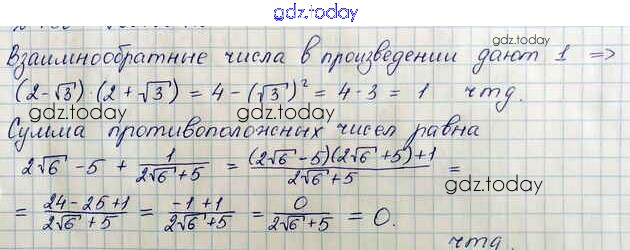 gdz.today
gdz.today
Взаимнообратные числа в произведении дают 1 =>
(2-√3)·(2+√3) = 4-(√3)² = 4-3 = 1 чтд.
gdz.today
gdz.today
Сумма противоположных чисел равна
2√6 - 5 + 1/(2√6+5) = ((2√6-5)(2√6+5)+1)/(2√6+5) =
gdz.today
= (24-25+1)/(2√6+5) = (-1+1)/(2√6+5) = 0/(2√6+5) = 0.
чтд.